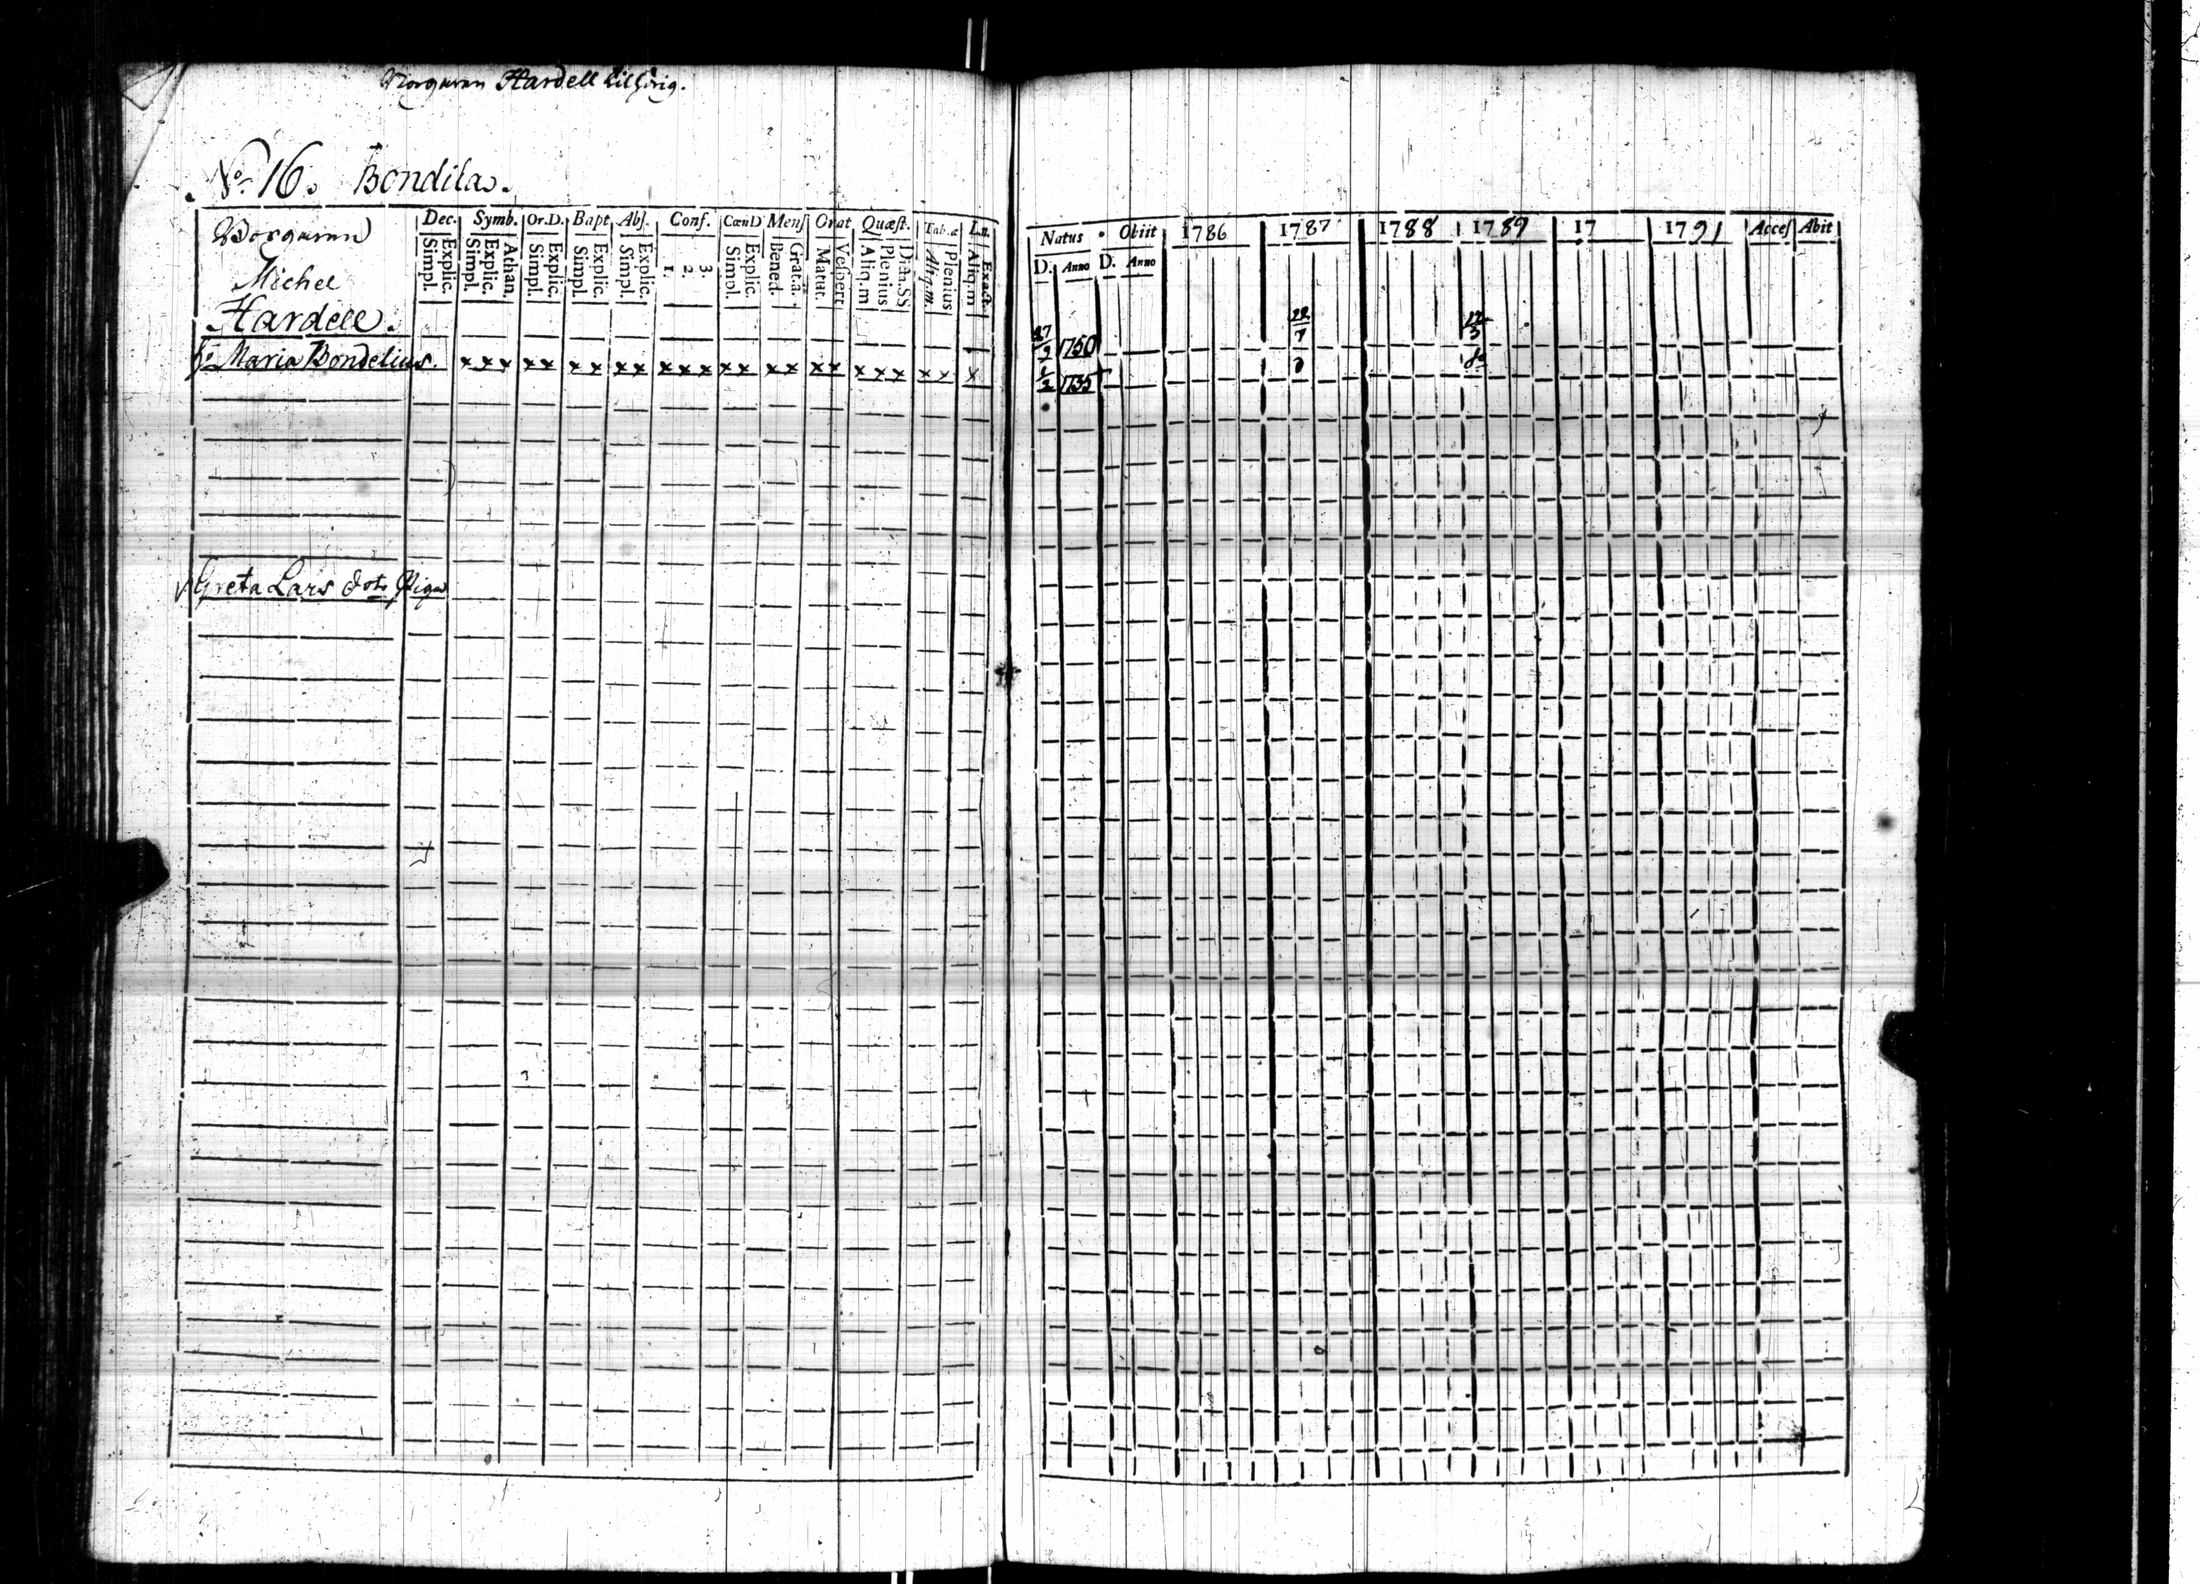 Borgaren Hardell tilhörig.
No. 16. Bondila.
Dec. Symb. Or.D. Bapt Abs. Conf. CœnD Mens Orat Quæst. Tab.æ L.n.
Explic. Simpl. Athan. Explic. Simpl. Explic. Simpl. Explic. Simpl. Explic. Simpl. 3. 2. 1. Explic. Simpl. Grat.a. Bened. Vespert Matut. Dict.SS. Plenius Aliq.m Plenius Aliq.m. Exacte. Aliq.m
Borgaren
Michel
Hardell.
H: Maria Bondelius. x x x x x x x x x x x x x x x x x x x x x x x x
Greta Lars dotr Piga
Natus Obiit 1786 1787 1788 1789 17 1791 Acces Abit
D. Anno D. Anno
27/9 1750 22/7 12/3
1/2 1735